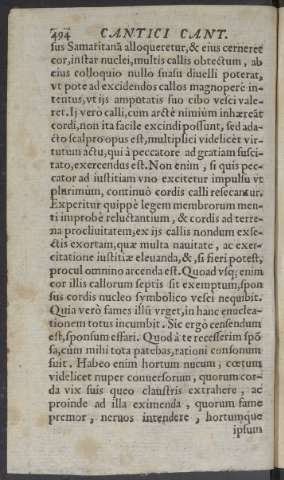 494 CANTICI CANT.
sus Samaritanã alloqueretur, & eius cerneret
cor, instar nuclei, multis callis obtectum, ab
eius colloquio nullo suasu diuelli poterat,
vt pote ad excidendos callos magnoperè in-
tentus, vt ijs amputatis suo cibo vesci vale-
ret. Ij vero calli, cum arctè nimiùm inhæreãt
cordi, non ita facile excindi possunt, sed ada-
cto scalpro opus est, multiplici videlicèt vir-
tutum actu, qui à peccatore ad gratiam susci-
tato, exercendus est. Non enim, si quis pec-
cator ad iustitiam vno excitetur impulsu vt
plurimùm, continuò cordis calli resecantur.
Experitur quippè legem membrorum men-
ti improbè reluctantium, & cordis ad terre-
na procliuitatem, ex ijs callis nondum exse-
ctis exortam, quæ multa nauitate, ac exer-
citatione iustitiæ eleuanda, &, si fieri potest,
procul omnino arcenda est. Quoad vsq; enim
cor illis callorum septis sit exemptum, spon
sus cordis nucleo symbolico vesci nequibit.
Quia verò fames illũ vrget, in hanc enuclea-
tionem totus incumbit. Sic ergò censendum
est, sponsum effari. Quod à te recesserim spõ
sa, cùm mihi tota patebas, rationi consonum
fuit. Habeo enim hortum nucum, cœtum
videlicet nuper conuersorum, quorum cor-
da vix suis queo claustris extrahere, ac
proinde ad illa eximenda, quorum fame
premor, neruos intendere, hortumque
ipsum